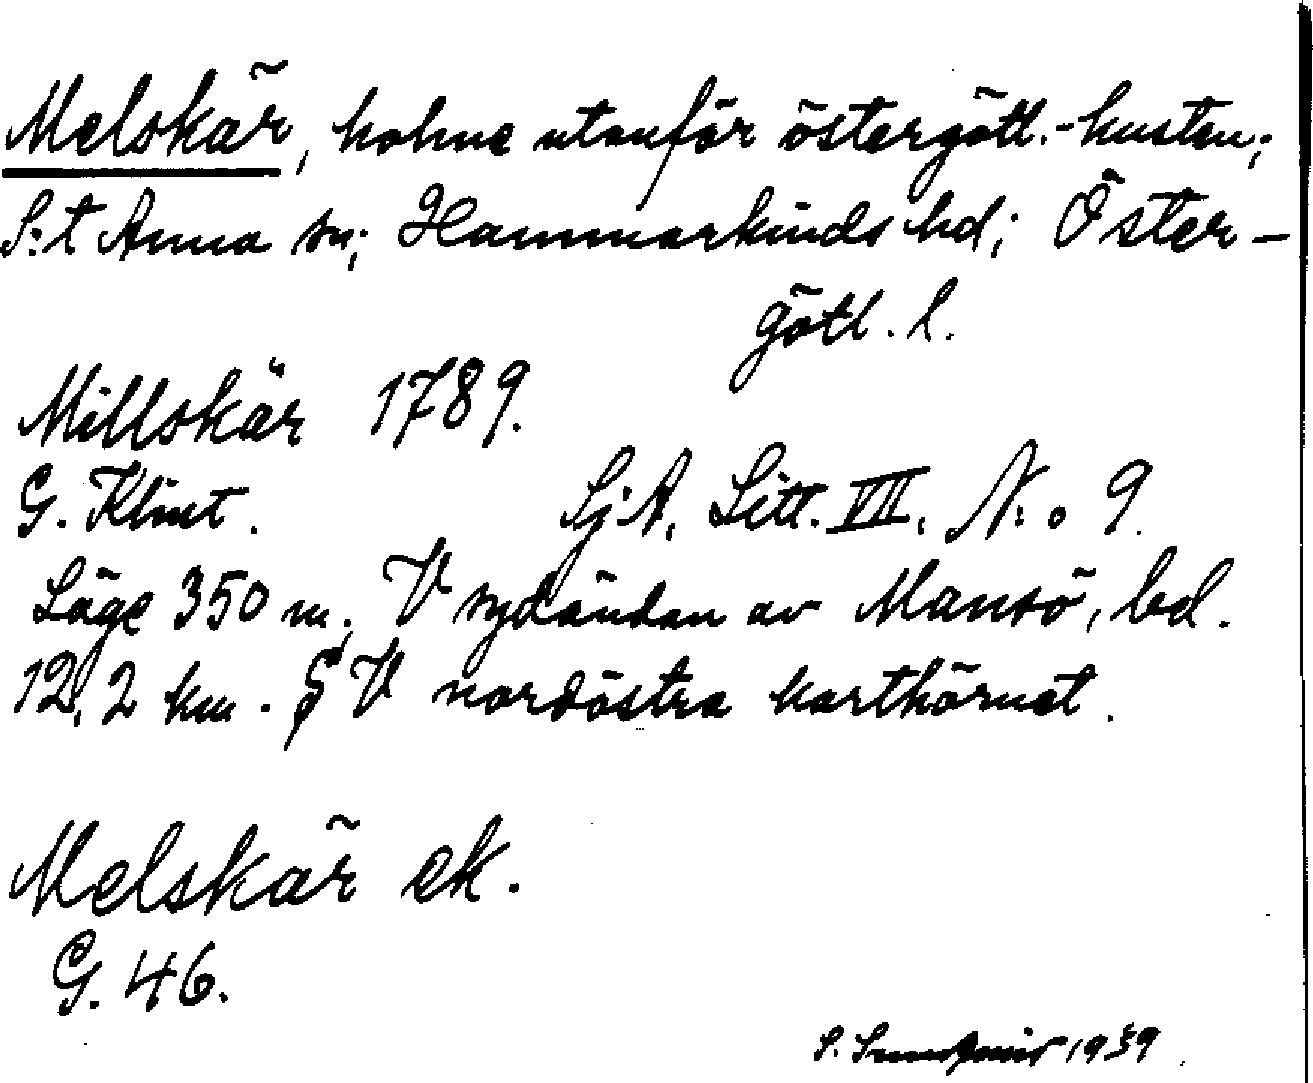 Melskär, holme utanför östergötl.-kusten;
S:t Anna sn; Hammarkinds hd; Öster-
götl. l.
Millskär 1789.
G. Klint. Sj.A. Litt. VII. N:o 9.
Läge 350 m. V sydändan av Mansö, bel.
12,2 km. S V nordöstra karthörnet.
Melskär ek.
G. 46.
S. 1939.